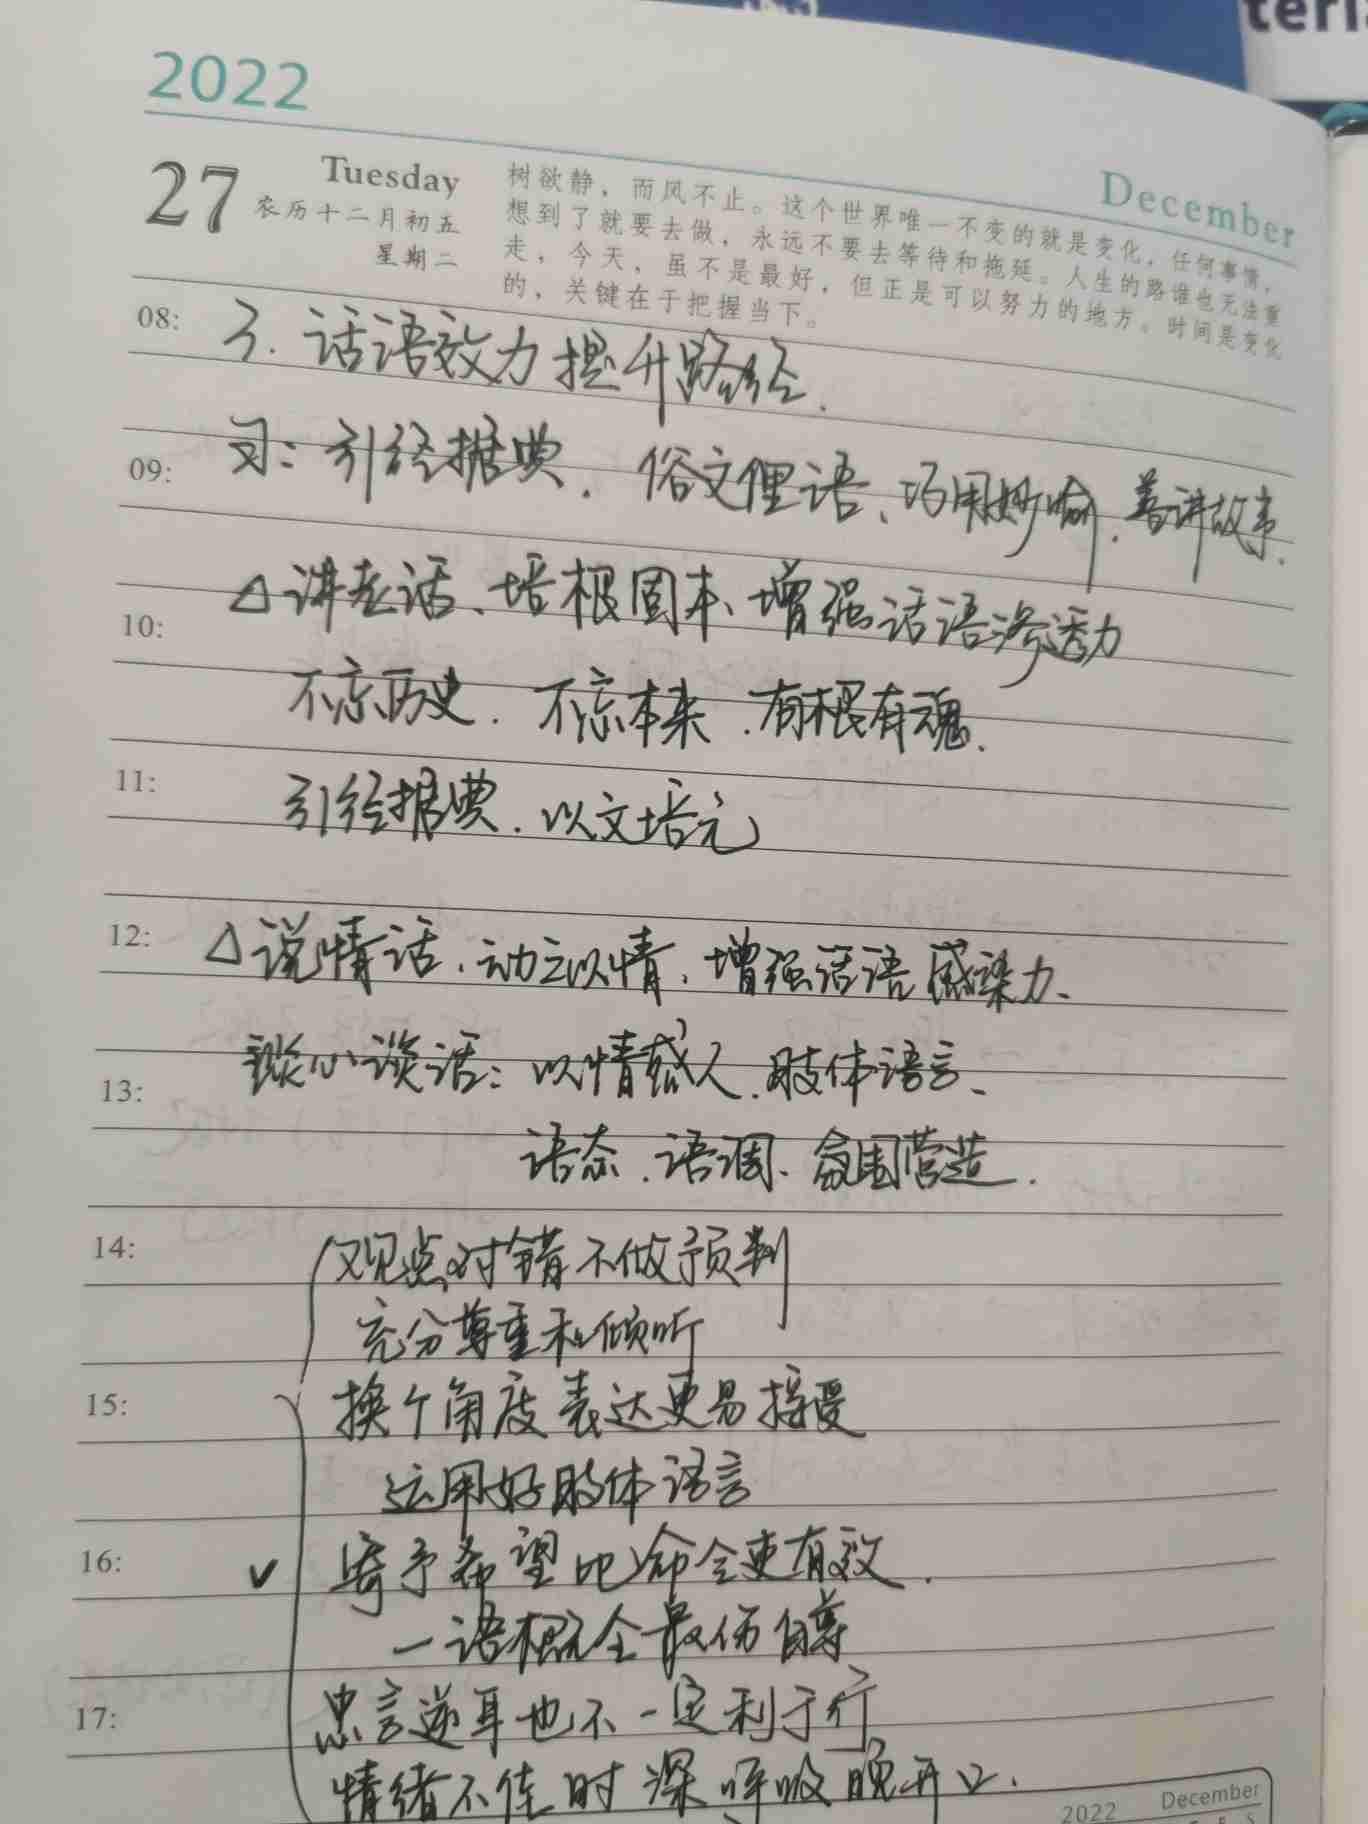 2022
December
27
Tuesday
农历十二月初五
星期二
树欲静，而风不止。这个世界唯一不变的就是变化，任何事情，
想到了就要去做，永远不要去等待和拖延。人生的路谁也无法重
走，今天，虽不是最好，但正是可以努力的地方。时间是变化
的，关键在于把握当下。
08: 3. 话语效力提升路径.
09: 习：引经据典、俗文俚语、巧用妙喻、善讲故事.
10: △讲老话、培根固本、增强话语渗透力
不忘历史、不忘本来、有根有魂.
11: 引经据典、以文培元
12: △说情话、动之以情、增强话语感染力、
13: 谈心谈话：以情感人、肢体语言、
语态、语调、氛围营造.
14: 观点对错不做预判
充分尊重和倾听
15: 换个角度表达更易接受
运用好肢体语言
16: ✓ 寄予希望比命令更有效.
一语概全最伤自尊
17: 忠言逆耳也不一定利于行
情绪不佳时深呼吸晚开口.
2022 December